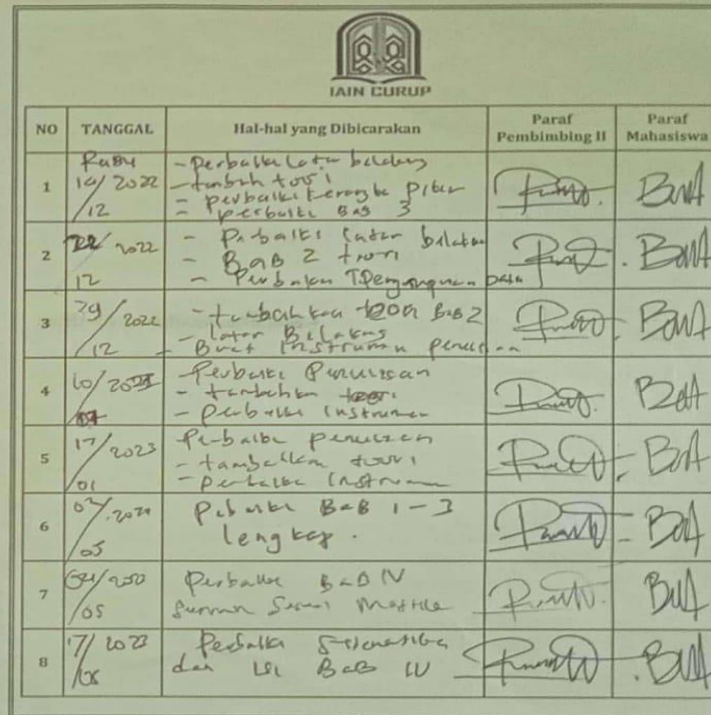 IAIN CURUP
NO TANGGAL Hal-hal yang Dibicarakan Paraf Pembimbing II Paraf Mahasiswa
1 Rabu 14/2022 /12 - Perbaiki Latar belakang
- tambah teori
- perbaiki kerangka pikir
- perbaiki Bab 3
2 22/2022 /12 - Perbaiki latar belakan
- BaB 2 teori
- Perbaikan T Pengumpulan Data
3 29/2022 /12 - tambahkan teori Bab 2
- latar Belakang
- Buat Instrumen
4 10/ - Perbaiki Penulisan
- tambahkan teori
- perbaiki Instrumen
5 17/2023 /01 Perbaiki penulisan
- tambahkan teori
- perbaiki Instrumen
6 /05 BaB 1 - 3
lengkap.
7 /05 Perbaiki BaB IV
Sesuai
8 17/2023 Perbaiki
dan isi BaB IV